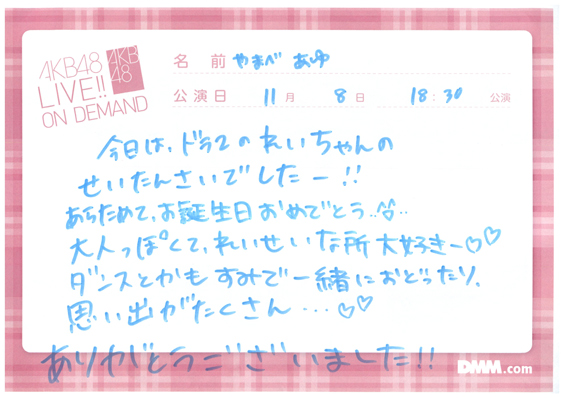 AKB48
LIVE!!
ON DEMAND
AKB
48
名前 やまべ あゆ
公演日 11月 8日 18:30 公演
今日は、ドラ2のれいちゃんの
せいたんさいでしたー!!
あらためて、お誕生日おめでとう
大人っぽくて、れいせいな所大好きー♡♡
ダンスとかもすみで一緒におどったり、
思い出がたくさん...♡♡
ありがとうございました!!
DMM.com